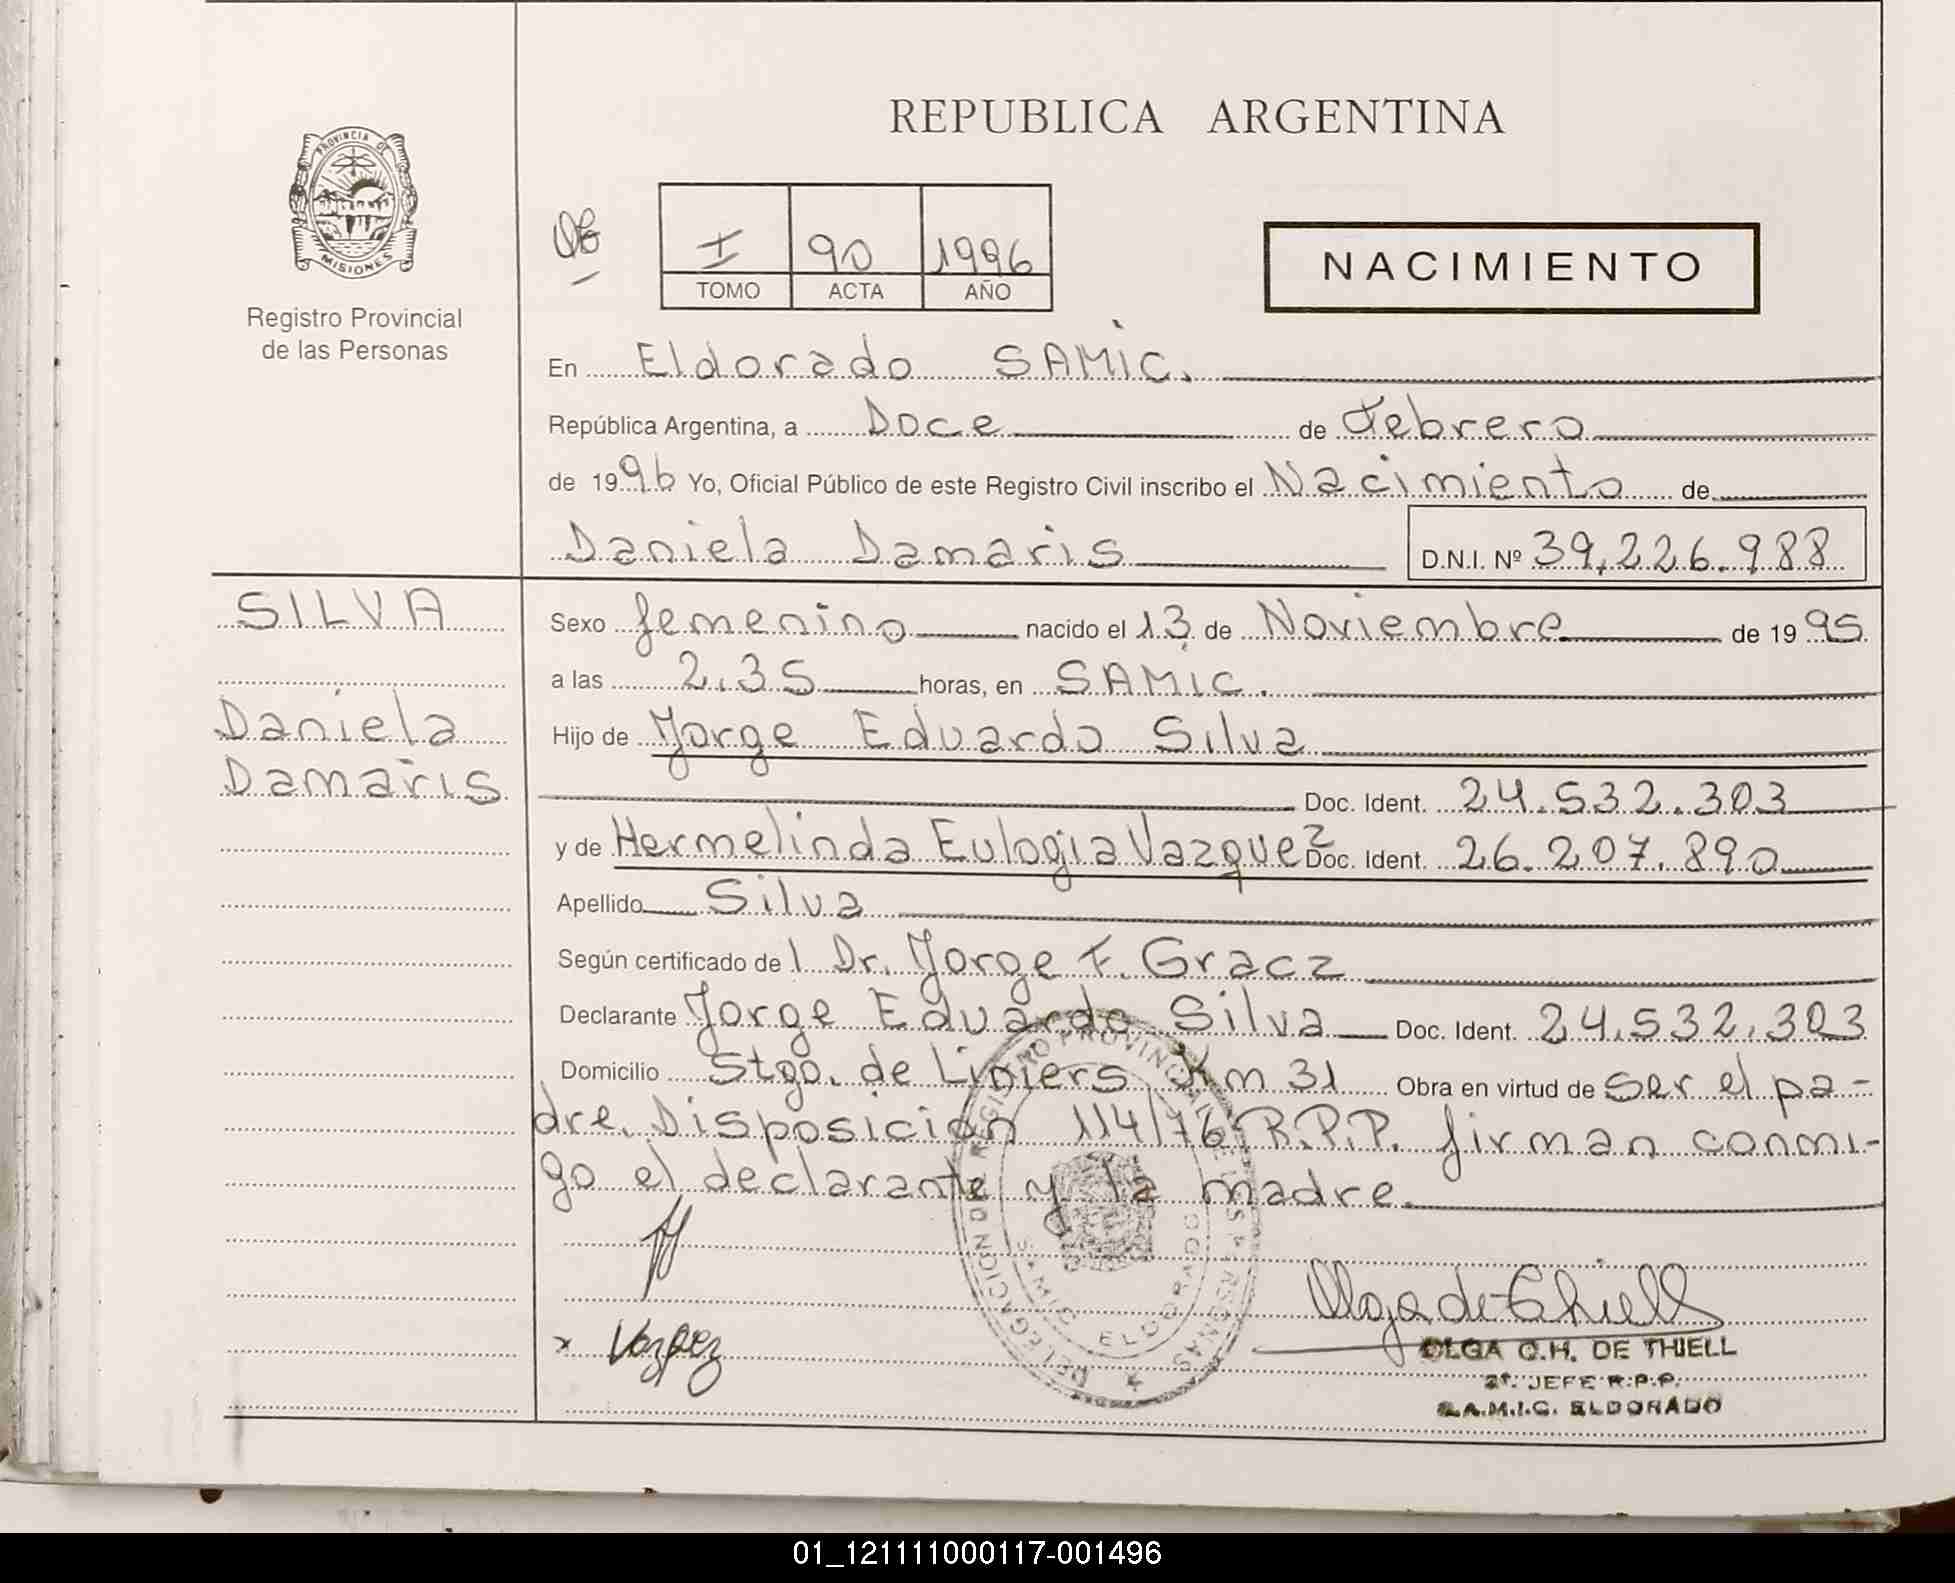 REPUBLICA ARGENTINA
PROVINCIA DE
MISIONES
Registro Provincial
de las Personas
I 90 1996
TOMO ACTA AÑO
NACIMIENTO
En Eldorado SAMIC.
República Argentina, a Doce de Febrero
de 1996 Yo, Oficial Público de este Registro Civil inscribo el Nacimiento de
Daniela Damaris D.N.I. Nº 39,226.988
SILVA
Daniela
Damaris
Sexo femenino nacido el 13 de Noviembre de 1995
a las 2.35 horas, en SAMIC.
Hijo de Jorge Eduardo Silva
Doc. Ident. 24.532.303
y de Hermelinda Eulogia Vazquez Doc. Ident. 26.207.890
Apellido Silva
Según certificado del Dr. Jorge F. Gracz
Declarante Jorge Eduardo Silva Doc. Ident. 24.532.303
Domicilio Stgo. de Liniers Km 31 Obra en virtud de ser el pa-
dre. Disposición 114/76 R.P.P. firman conmi-
go el declarante y la madre.
DELEGACION DE REGISTRO PROVINCIAL DE LAS PERSONAS
SAMIC ELDORADO
x Vazquez
Olga de Thiell
OLGA C.H. DE THIELL
2º. JEFE R.P.P.
S.A.M.I.C. ELDORADO
01_121111000117-001496